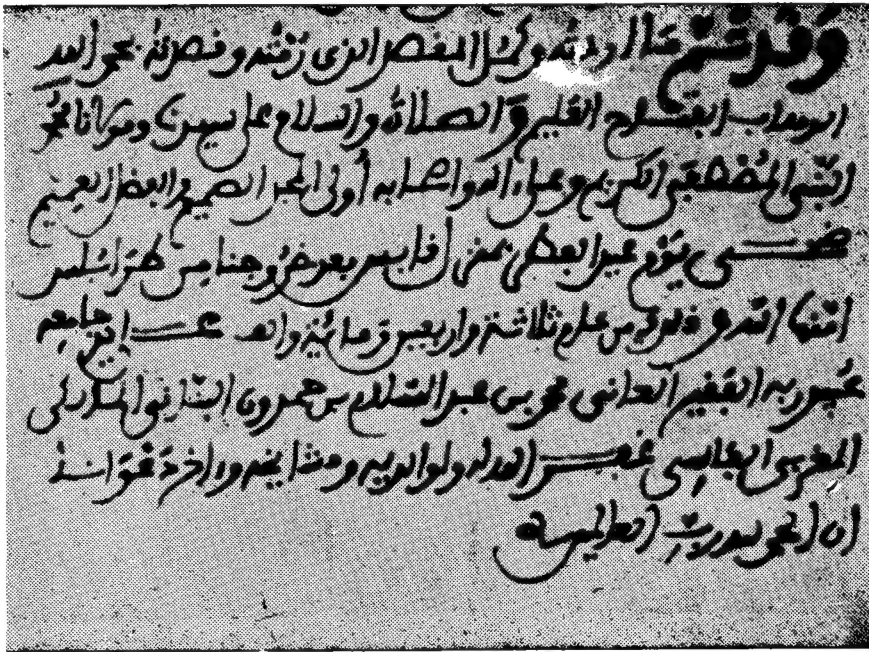 وقد تم ما اردته وكمل الغرض الذي رمته وقصدته بحمد الله
الوهاب الفتاح العليم والصلاة والسلام على سيدنا ومولانا محمد
النبي المصطفى الكريم وعلى اله واصحابه أولى المجد الصميم والفضل العميم
ضحى يوم عيد الفطر بمنزل
امنها الله وذلك من عام ثلاثة واربعين ومائة والف على يد جامعه
عبيد ربه الفقير الجاني محمد بن عبد السلام بن حمدون البناني
المغربي الفاسي غفر الله له ولوالديه ومشايخه وءاخر دعوانا
ان الحمد لله رب العالمين